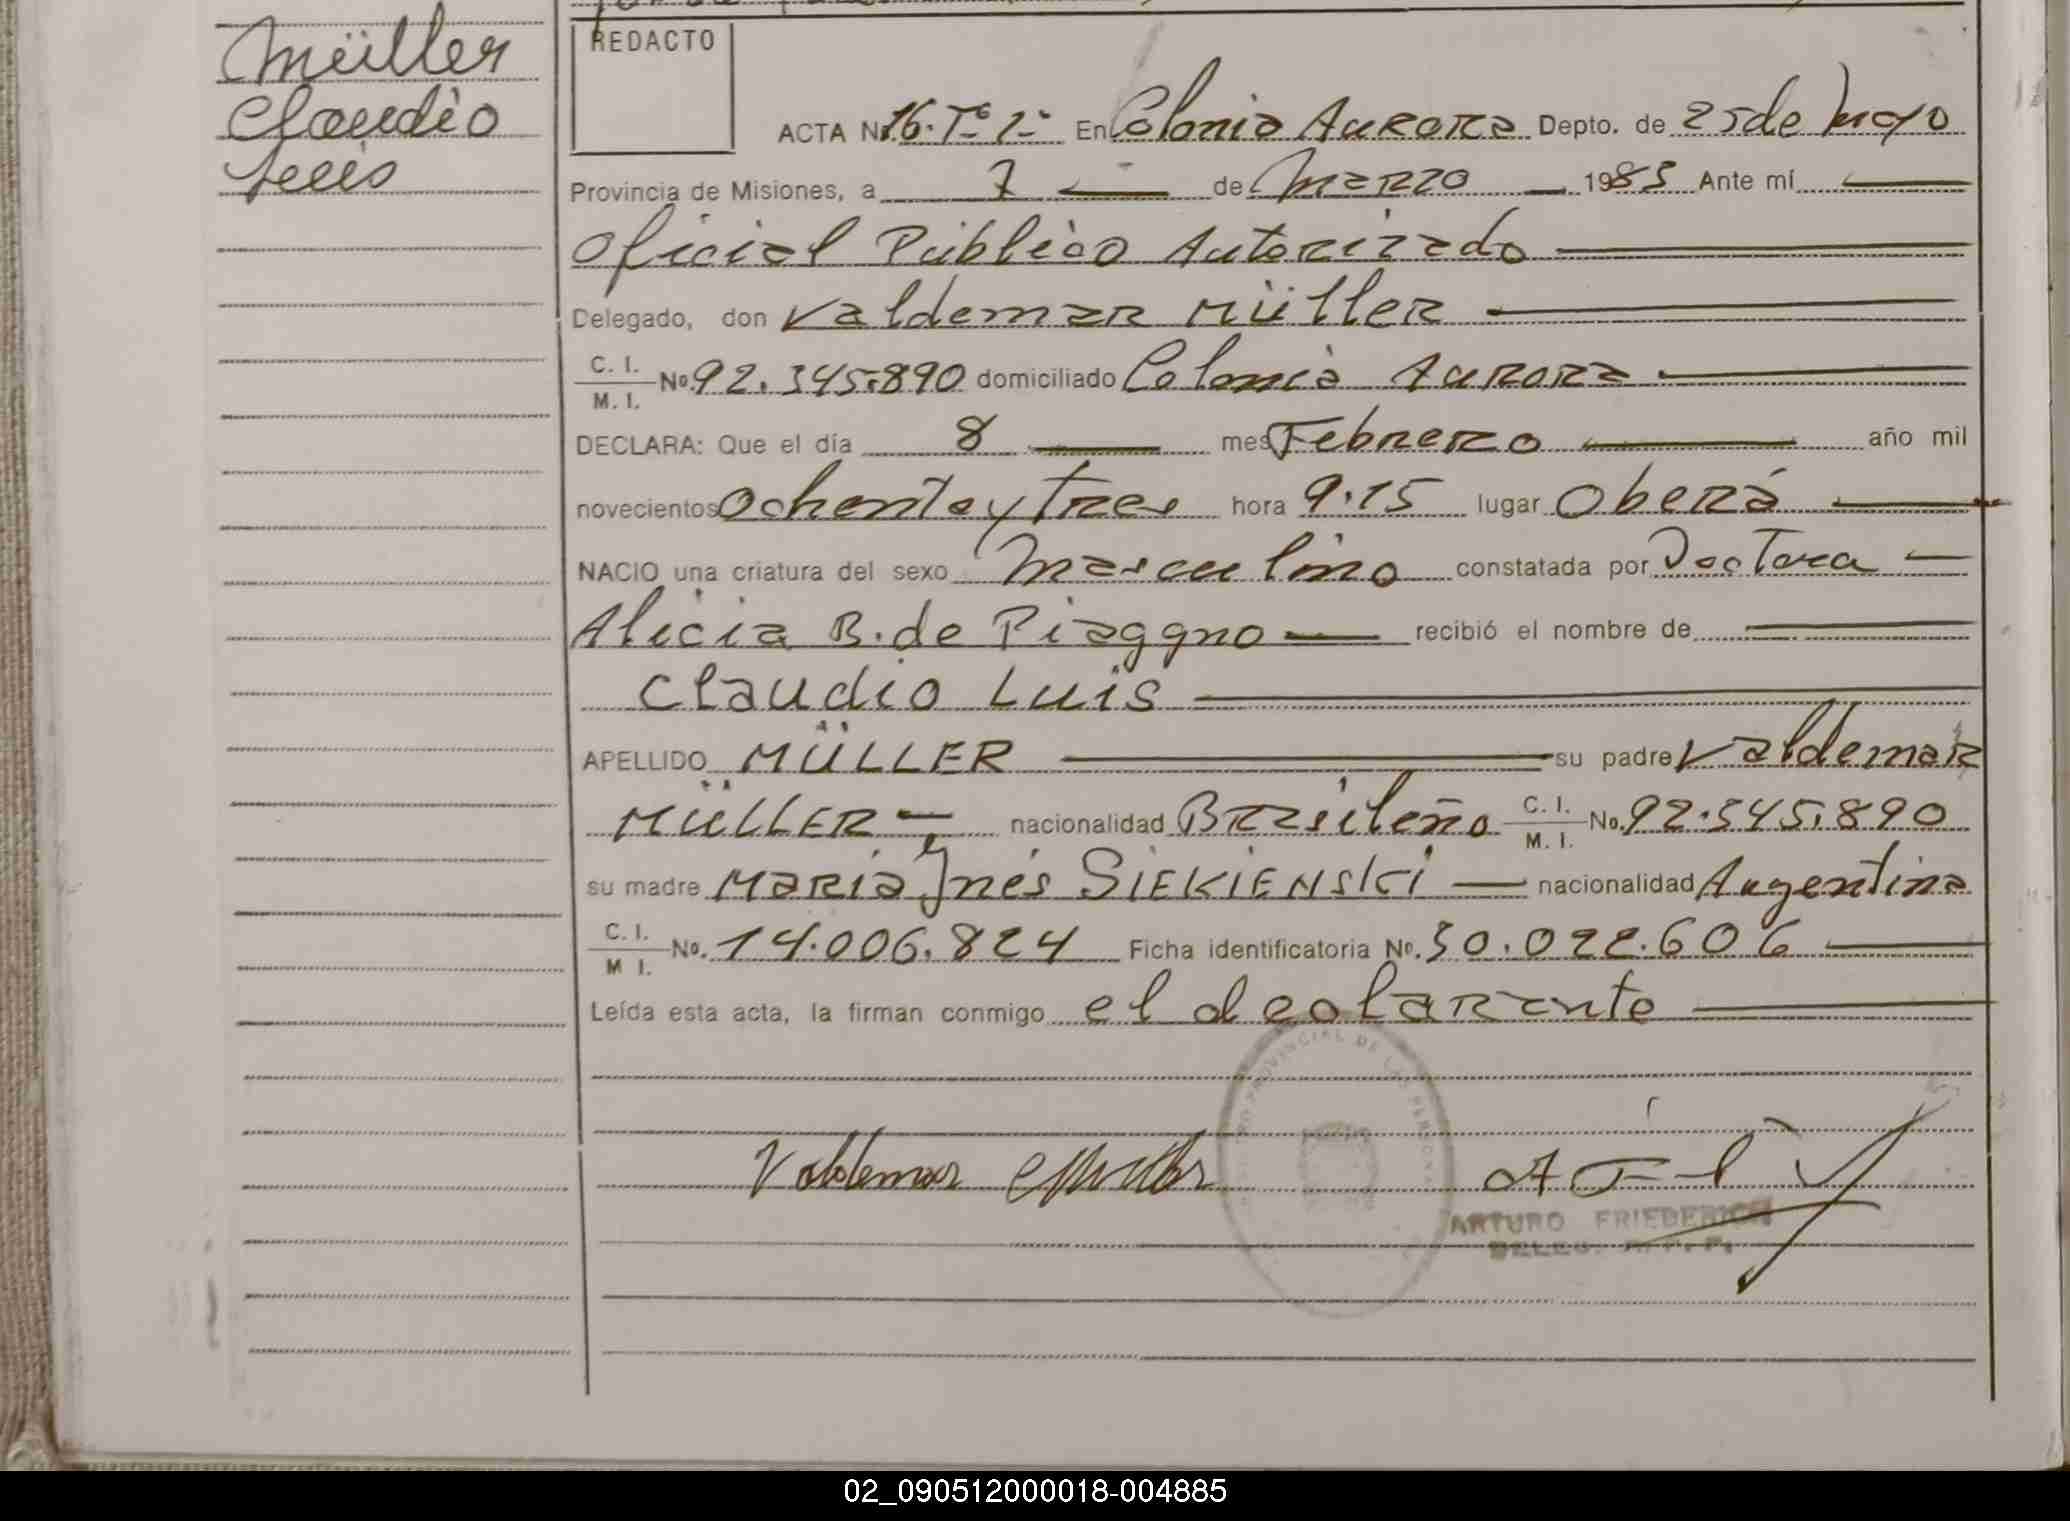 Müller
Claudio
Luis
REDACTO
ACTA Nº 16. Tº 1º En Colonia Aurora Depto. de 25 de Mayo
Provincia de Misiones, a 7 de Marzo 1983 Ante mí
Oficial Público Autorizado
Delegado, don Valdemar Müller
C. I.
M. I. No. 92.345.890 domiciliado Colonia Aurora
DECLARA: Que el día 8 mes Febrero año mil
novecientos Ochenta y Tres hora 9.15 lugar Oberá
NACIO una criatura del sexo Masculino constatada por Doctora
Alicia B. de Piaggno recibió el nombre de
Claudio Luis
APELLIDO MÜLLER su padre Valdemar
MÜLLER nacionalidad Brasileño C. I.
M. I. No. 92.345.890
su madre María Inés SIEKIENSKI nacionalidad Argentina
C. I.
M I. No. 14.006.824 Ficha identificatoria No. 30.022.606
Leída esta acta, la firman conmigo el declarante
PROVINCIAL DE LAS PERSONAS
Valdemar Müller
ARTURO FRIEDERICH
DELEG.
02_090512000018-004885